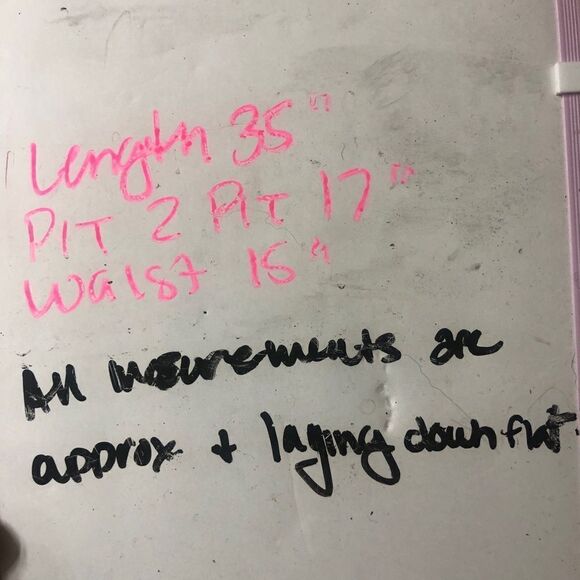 Length 35"
PIT 2 PIT 17"
Waist 15"
All mesurements are
approx + laying down flat